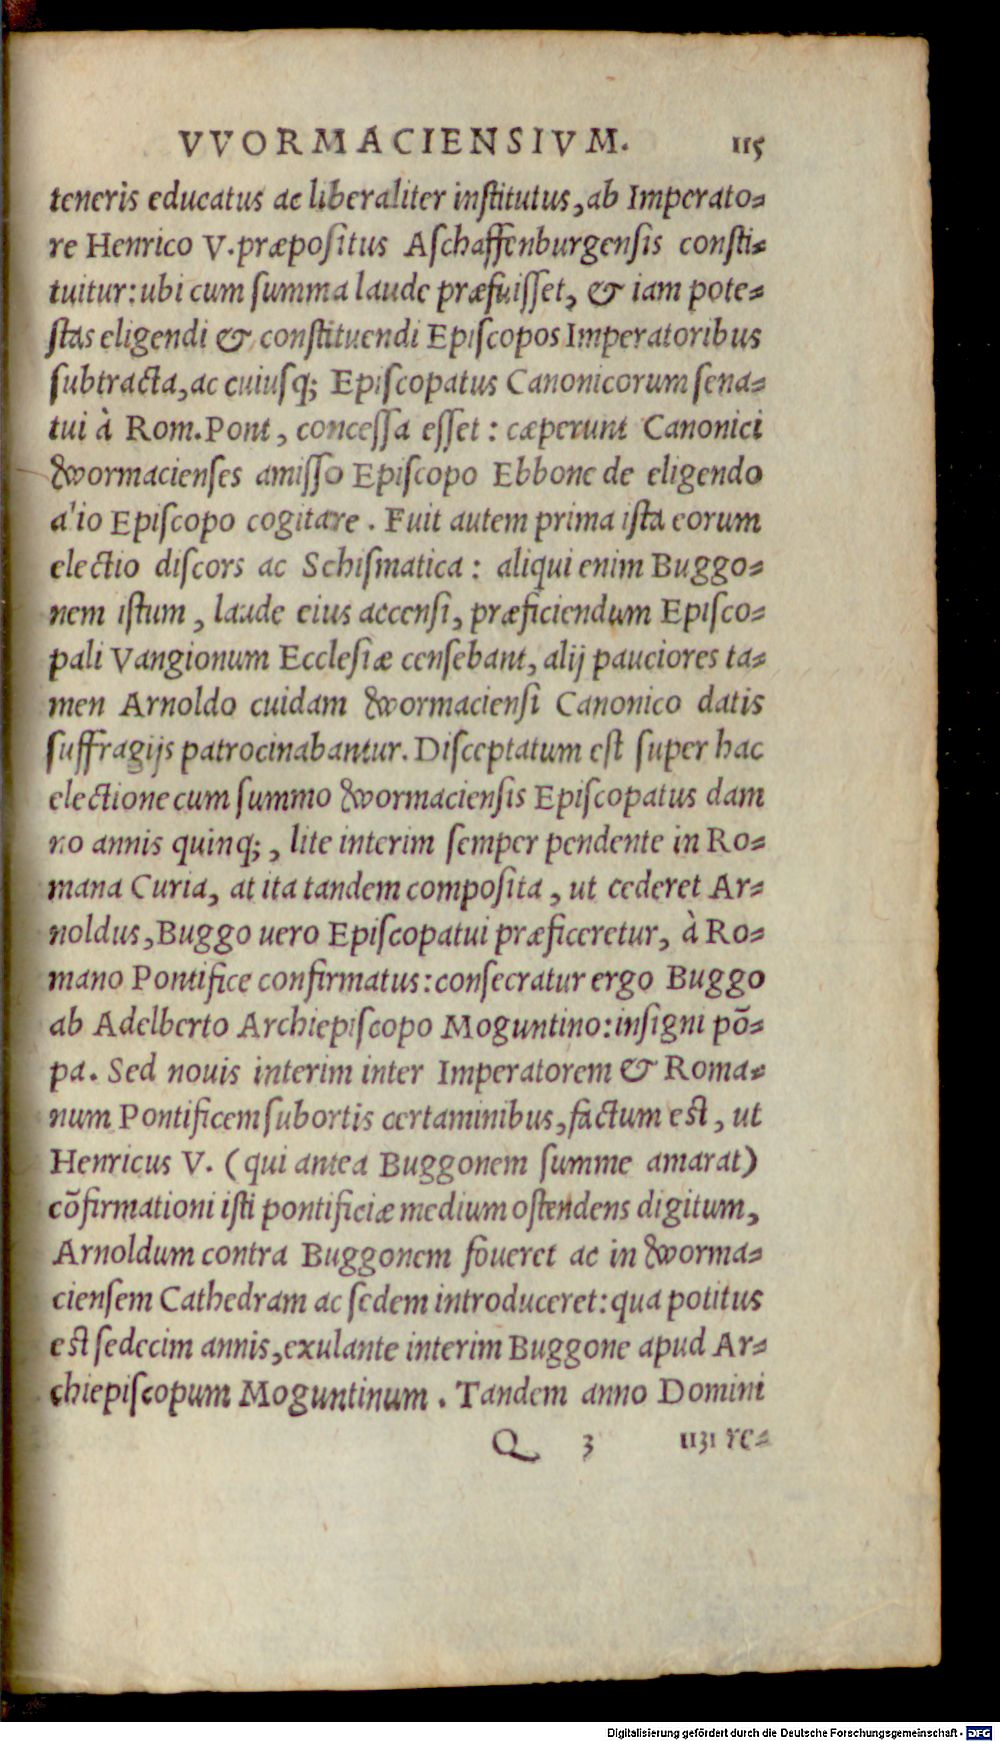 VVORMACIENSIVM. 115
teneris educatus ac liberaliter inſtitutus, ab Imperato-
re Henrico V. præpoſitus Aſchaffenburgenſis conſti-
tuitur: ubi cum ſumma laude præfuiſſet, & iam pote-
ſtas eligendi & conſtituendi Epiſcopos Imperatoribus
ſubtracta, ac cuiuſq; Epiſcopatus Canonicorum ſena-
tui à Rom. Pont, conceſſa eſſet: cæperunt Canonici
wormacienſes amiſſo Epiſcopo Ebbone de eligendo
a'io Epiſcopo cogitare. Fuit autem prima iſta eorum
electio diſcors ac Schiſmatica: aliqui enim Buggo-
nem iſtum, laude eius accenſi, præficiendum Epiſco-
pali Vangionum Eccleſiæ cenſebant, alij pauciores ta-
men Arnoldo cuidam wormacienſi Canonico datis
ſuffragijs patrocinabantur. Diſceptatum eſt ſuper hac
electione cum ſummo wormacienſis Epiſcopatus dam
no annis quinq;, lite interim ſemper pendente in Ro-
mana Curia, at ita tandem compoſita, ut cederet Ar-
noldus, Buggo uero Epiſcopatui præficeretur, à Ro-
mano Pontifice confirmatus: conſecratur ergo Buggo
ab Adelberto Archiepiſcopo Moguntino: inſigni põ-
pa. Sed nouis interim inter Imperatorem & Roma-
num Pontificem ſubortis certaminibus, factum eſt, ut
Henricus V. (qui antea Buggonem ſumme amarat)
cõfirmationi iſti pontificiæ medium oſtendens digitum,
Arnoldum contra Buggonem foueret ac in worma-
cienſem Cathedram ac ſedem introduceret: qua potitus
eſt ſedecim annis, exulante interim Buggone apud Ar-
chiepiſcopum Moguntinum. Tandem anno Domini
Q 3 1131 re-
Digitalisierung gefördert durch die Deutsche Forschungsgemeinschaft - DFG